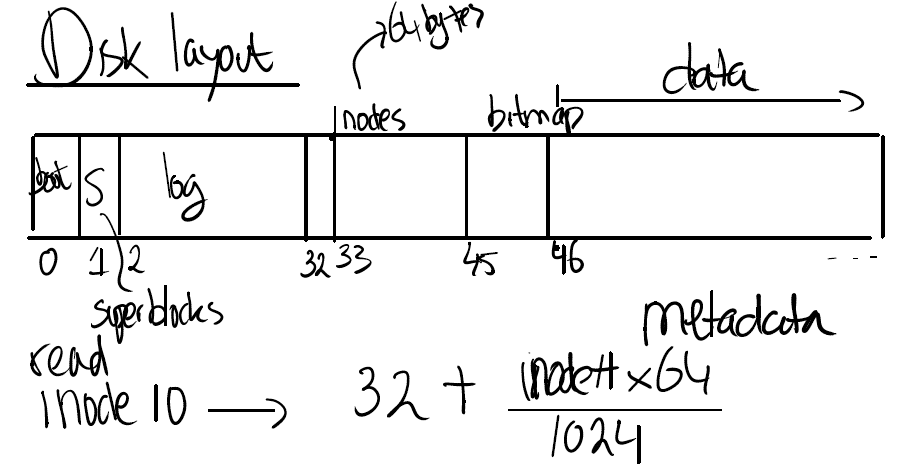 Disk layout
64 bytes
inodes
bitmap
data
boot
S
log
0
1
2
32
33
45
46
- - - -
superblocks
metadata
read
inode 10 → 32 + inode# x 64
1024